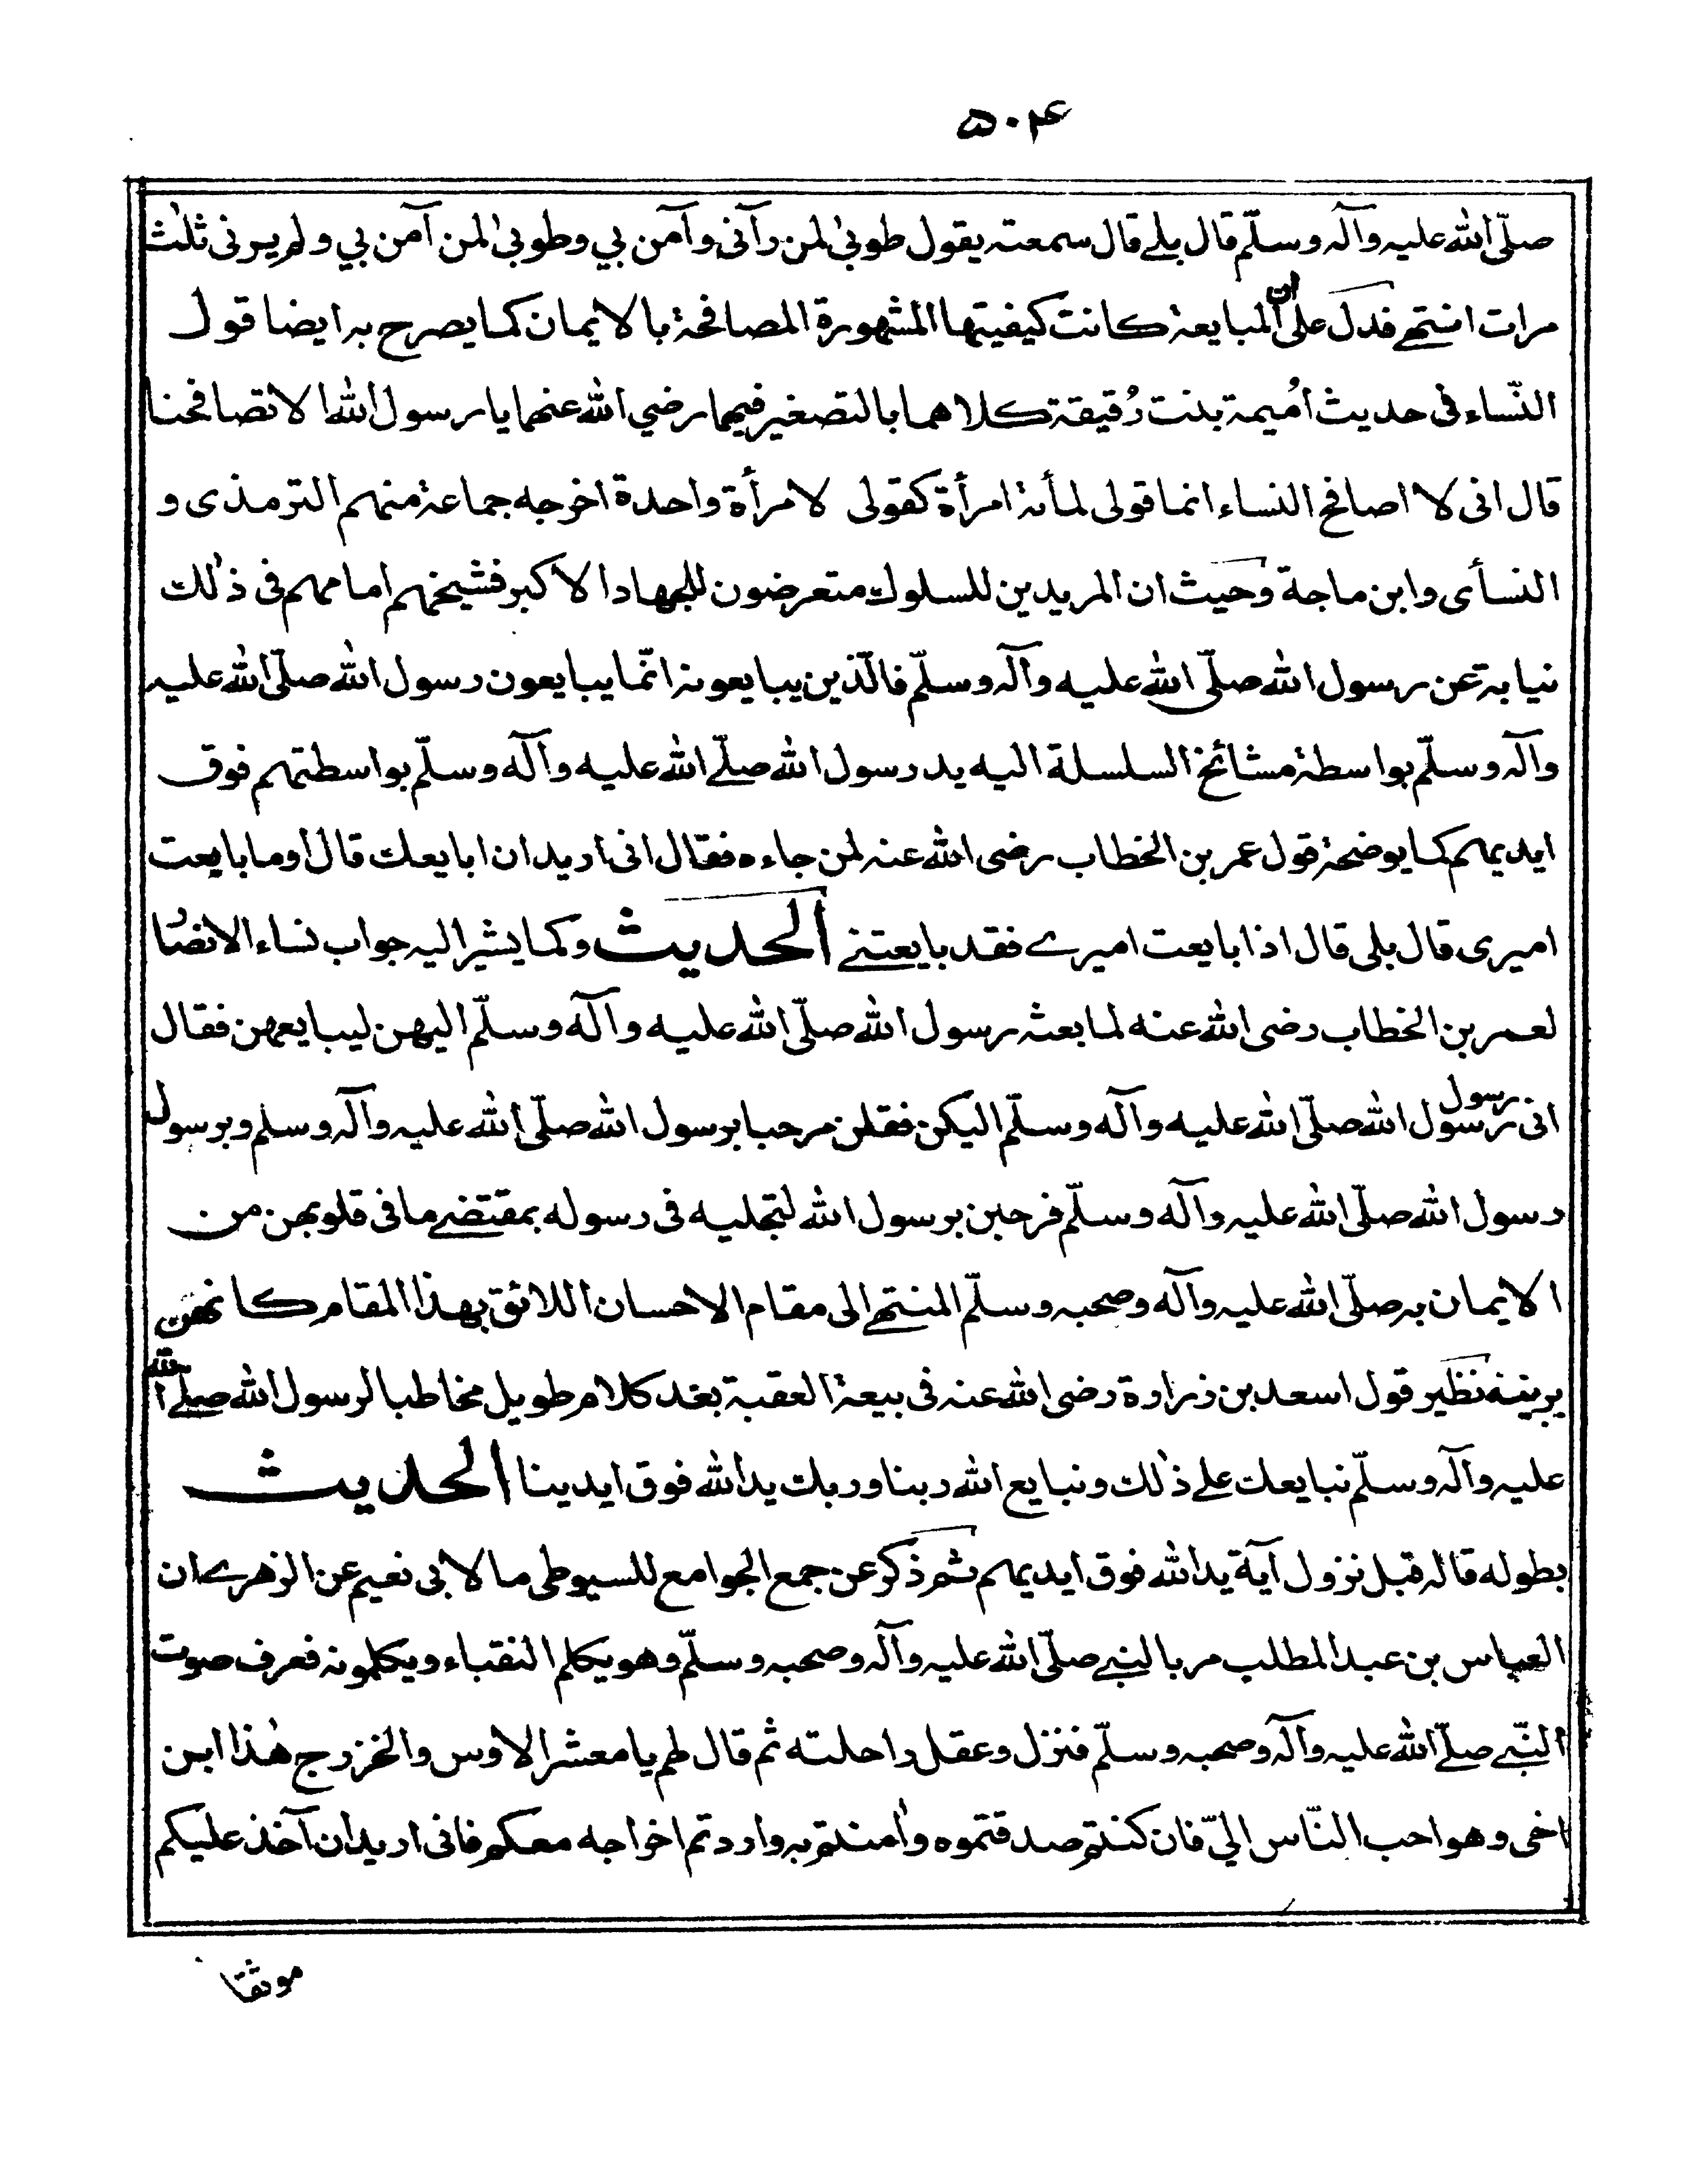 ۵۰۴
صلّى الله عليه وآله وسلّم قال بلے قال سمعته يقول طوبىٰ لمن رآنى وآمن بي وطوبىٰ لمن آمن بي ولم يرنى ثلٰث
مرات انتهے فدل على ان المبايعة كانت كيفيتها المشهورة المصافحة بالايمان كما يصرح به ايضا قول
النّساء فى حديث اُميمة بنت رُقيقة كلاهما بالتصغير فيهما رضي الله عنهما يا رسول الله الا تصافحنا
قال انى لا اصافح النساء انما قولى لمأئة امرأة كقولى لامرأة واحدة اخرجه جماعة منهم الترمذى و
النسأى وابن ماجة وحيث ان المريدين للسلوك متعرضون للجهاد الاكبر فشيخهم امامهم فى ذٰلك
نيابة عن رسول الله صلّى الله عليه وآله وسلّم فالّذين يبايعونه انّما يبايعون رسول الله صلّى الله عليه
وآله وسلّم بواسطة مشائخ السلسلة اليه يد رسول الله صلّے الله عليه وآله وسلّم بواسطتهم فوق
ايديهم كما يوضحه قول عمر بن الخطاب رضى الله عنه لمن جاءه فقال انى اريد ان ابايعك قال اوما بايعت
اميرى قال بلى قال اذا بايعت اميرے فقد بايعتنے الحديث وكما يشير اليه جواب نساء الانصا
لعمر بن الخطاب رضى الله عنه لما بعثه رسول الله صلّى الله عليه وآله وسلّم اليهن ليبايعهن فقال
انى رسول رسول الله صلّى الله عليه وآله وسلّم اليكن فقلن مرحبا برسول الله صلّى الله عليه وآله وسلم وبرسول
رسول الله صلّى الله عليه وآله وسلّم فرحبن برسول الله لتجليه فى رسوله بمقتضے ما فى قلوبهن من
الايمان به صلّى الله عليه وآله وصحبه وسلّم المنتهے الى مقام الاحسان اللائق بهذا المقام كانهن
يرينه نظير قول اسعد بن زرارة رضى الله عنه فى بيعة العقبة بعد كلام طويل مخاطبا لرسول الله صلے الله
عليه وآله وسلّم نبايعك علے ذٰلك ونبايع الله ربنا وربك يد الله فوق ايدينا الحديث
بطوله قاله قبل نزول آية يد الله فوق ايديهم ثم ذكر عن جمع الجوامع للسيوطى ما لابى نعيم عن الزهرے ان
العباس بن عبد المطلب مر بالنبے صلّى الله عليه وآله وصحبه وسلّم وهو يكلم النقباء ويكلمونه فعرف صوت
النّبے صلّے الله عليه وآله وصحبه وسلّم فنزل وعقل راحلته ثم قال لهم يا معشر الاوس والخزرج هٰذا ابن
اخى وهو احب النّاس اليّ فان كنتم صدقتموه واٰمنتم به واردتم اخراجه معكم فانى اريد ان آخذ عليكم
موثقا